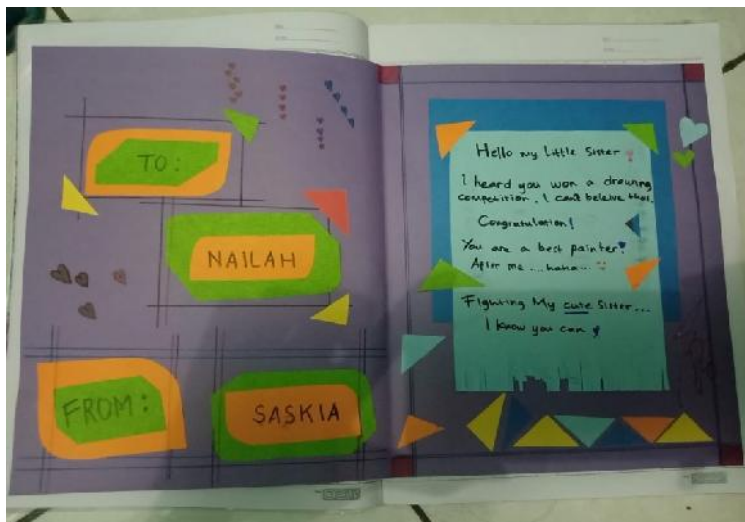 TO:
NAILAH
FROM:
SASKIA
Hello my Little Sister
I heard you won a drawing
competition. I can't beleive that.
Congratulation!
You are a best painter!
After me ... haha ...
Fighting My cute Sister...
I know you can